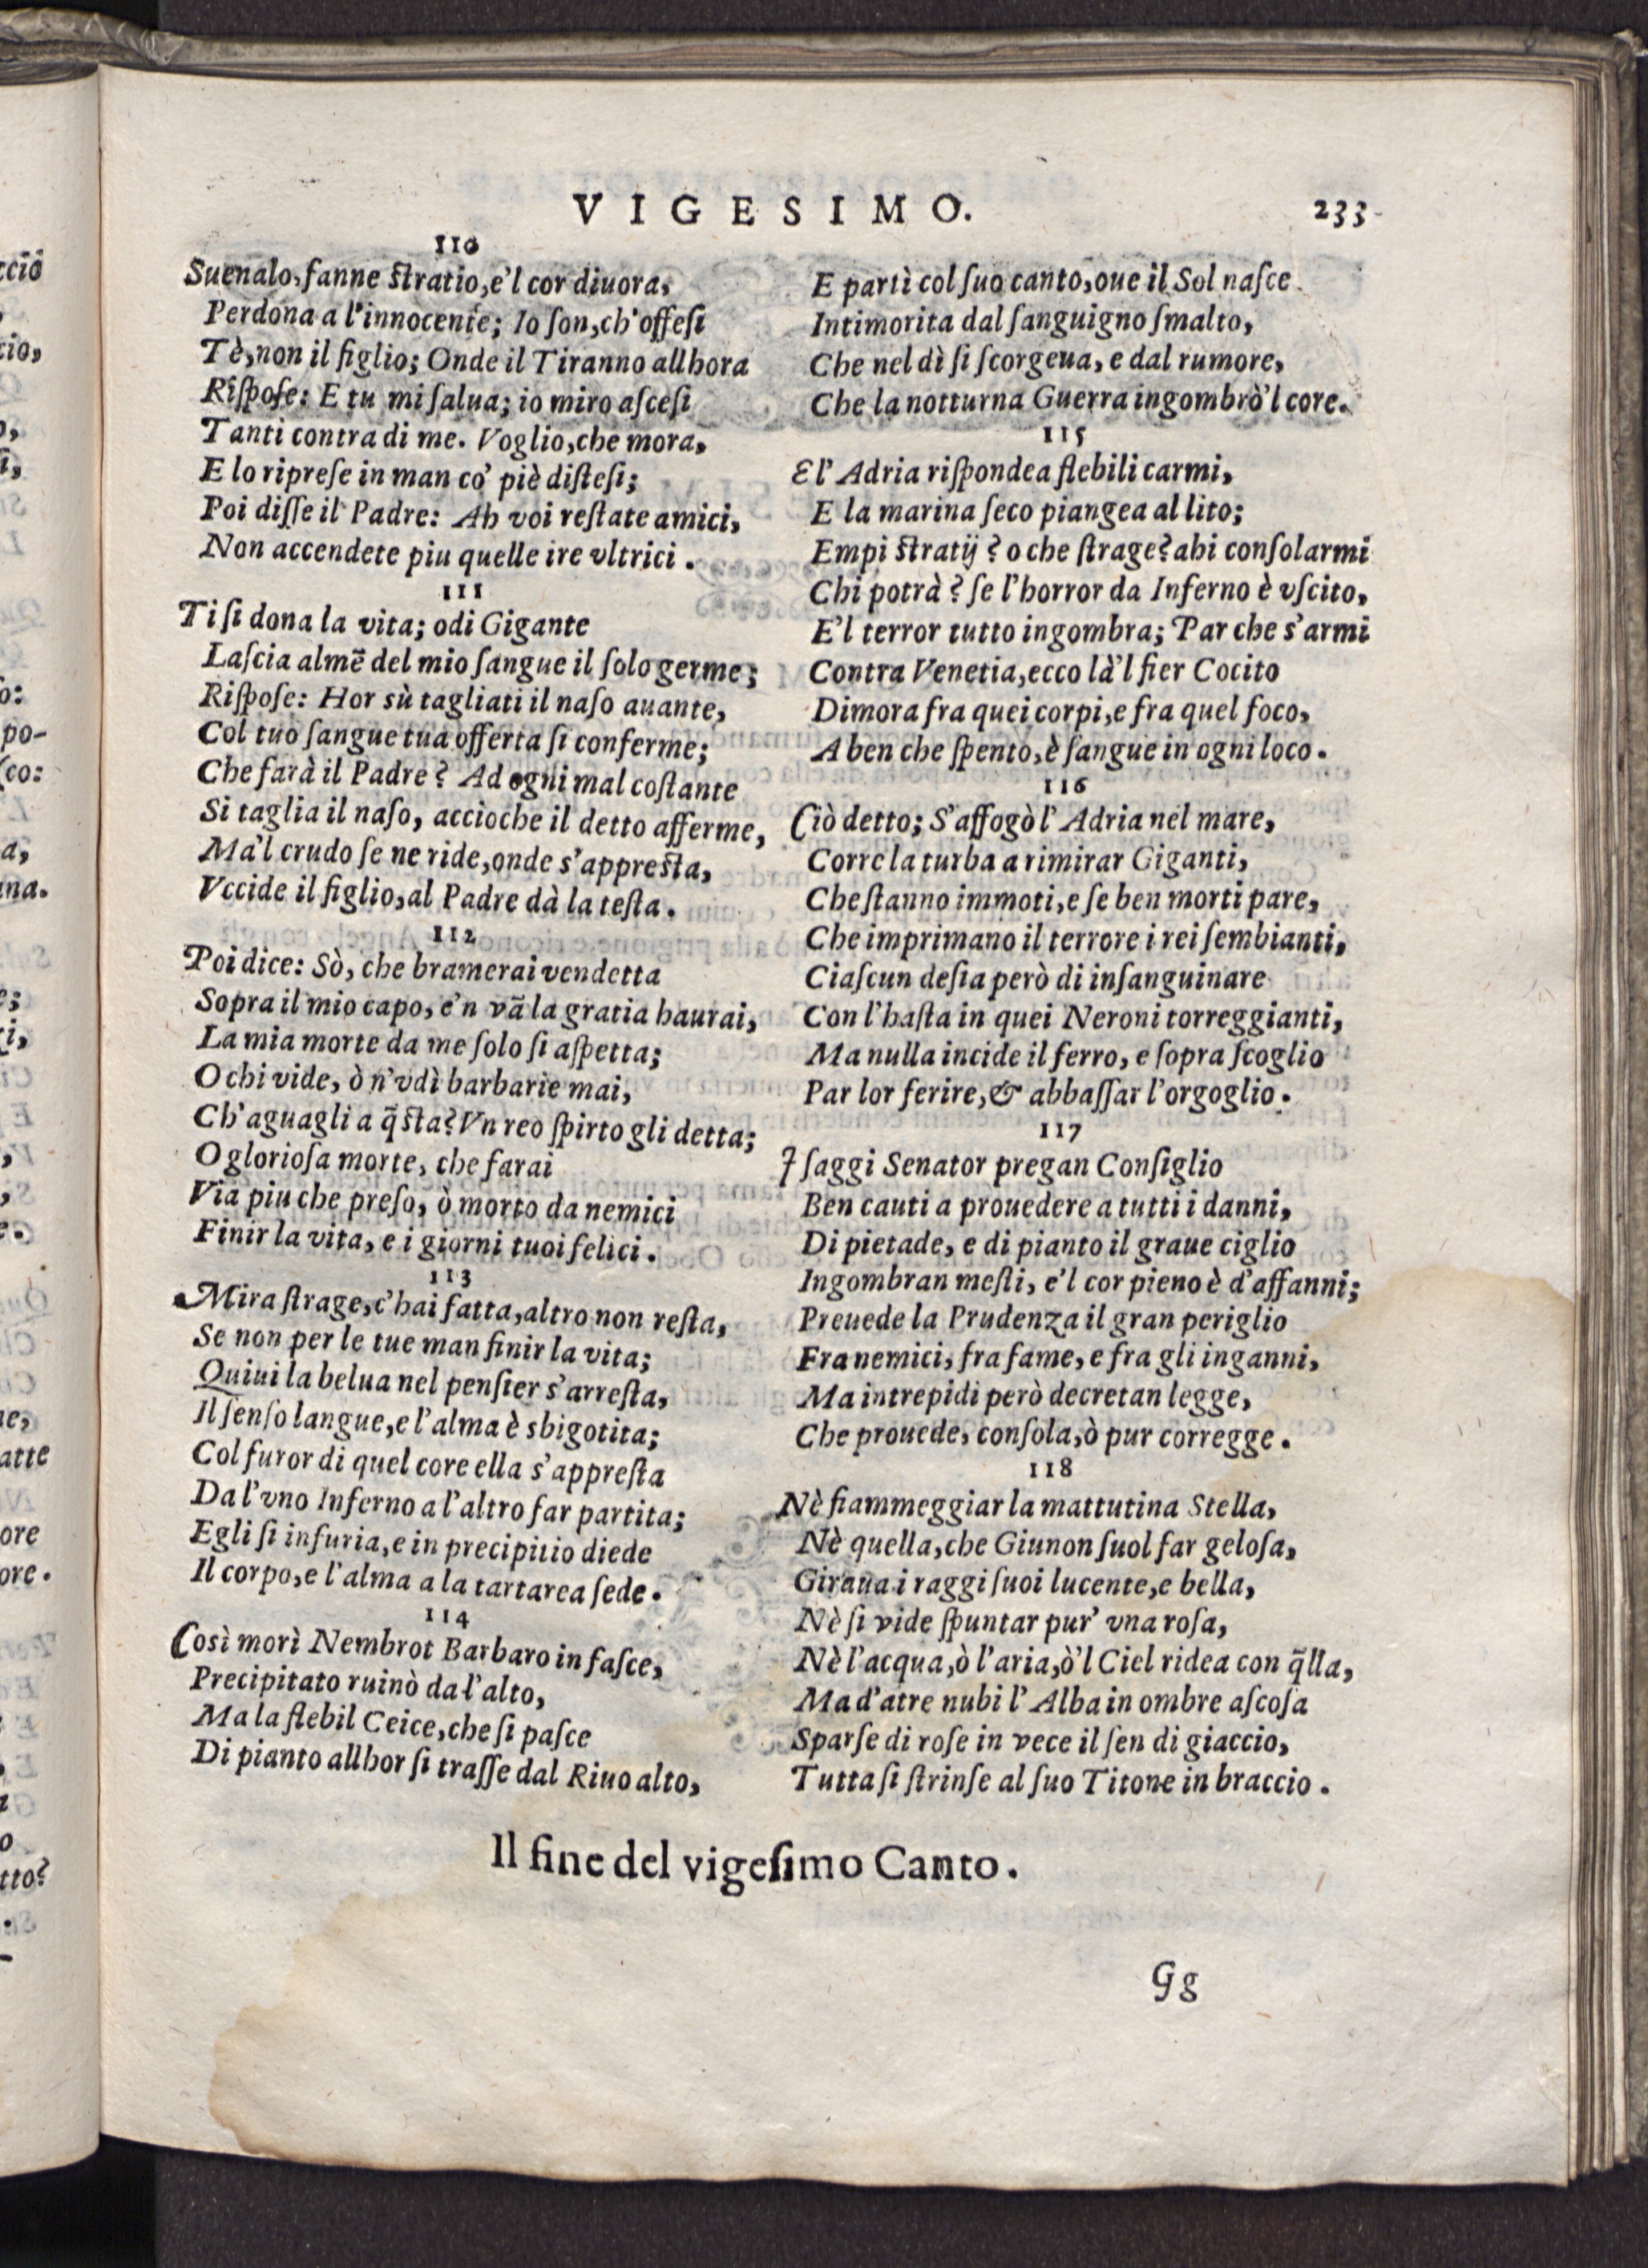 VIGESIMO.
233
110
Suenalo, fanne ſtratio, e'l cor diuora,
Perdona a l'innocente; Io ſon, ch'offeſi
Tè, non il figlio; Onde il Tiranno allhora
Riſpoſe: E tu mi ſalua; io miro aſceſi
Tanti contra di me. Voglio, che mora,
E lo ripreſe in man co' piè diſteſi;
Poi diſſe il Padre: Ah voi reſtate amici,
Non accendete piu quelle ire vltrici.
111
Ti ſi dona la vita; odi Gigante
Laſcia almē del mio ſangue il ſolo germe;
Riſpoſe: Hor sù tagliati il naſo auante,
Col tuo ſangue tua offerta ſi conferme;
Che farà il Padre? Ad ogni mal coſtante
Si taglia il naſo, accioche il detto afferme,
Ma'l crudo ſe ne ride, onde s'appreſta,
Vccide il figlio, al Padre dà la teſta.
112
Poi dice: Sò, che bramerai vendetta
Sopra il mio capo, e'n vā la gratia haurai,
La mia morte da me ſolo ſi aſpetta;
O chi vide, ò n'vdì barbarie mai,
Ch'aguagli a q̃ſta? Vn reo ſpirto gli detta;
O glorioſa morte, che farai
Via piu che preſo, ò morto da nemici
Finir la vita, e i giorni tuoi felici.
113
Mira ſtrage, c'hai fatta, altro non reſta,
Se non per le tue man finir la vita;
Quiui la belua nel penſier s'arreſta,
Il ſenſo langue, e l'alma è sbigotita;
Col furor di quel core ella s'appreſta
Da l'vno Inferno a l'altro far partita;
Egli ſi infuria, e in precipitio diede
Il corpo, e l'alma a la tartarea ſede.
114
Così morì Nembrot Barbaro in faſce,
Precipitato ruinò da l'alto,
Ma la flebil Ceice, che ſi paſce
Di pianto allhor ſi traſſe dal Riuo alto,
E partì col ſuo canto, oue il Sol naſce
Intimorita dal ſanguigno ſmalto,
Che nel dì ſi ſcorgeua, e dal rumore,
Che la notturna Guerra ingombrò'l core.
115
E l'Adria riſpondea flebili carmi,
E la marina ſeco piangea al lito;
Empi ſtratij? o che ſtrage? ahi conſolarmi
Chi potrà? ſe l'horror da Inferno è vſcito,
E'l terror tutto ingombra; Par che s'armi
Contra Venetia, ecco là'l fier Cocito
Dimora fra quei corpi, e fra quel foco,
A ben che ſpento, è ſangue in ogni loco.
116
Ciò detto; S'affogò l'Adria nel mare,
Corre la turba a rimirar Giganti,
Che ſtanno immoti, e ſe ben morti pare,
Che imprimano il terrore i rei ſembianti,
Ciaſcun deſia però di inſanguinare
Con l'haſta in quei Neroni torreggianti,
Ma nulla incide il ferro, e ſopra ſcoglio
Par lor ferire, & abbaſſar l'orgoglio.
117
I ſaggi Senator pregan Conſiglio
Ben cauti a prouedere a tutti i danni,
Di pietade, e di pianto il graue ciglio
Ingombran meſti, e'l cor pieno è d'affanni;
Preuede la Prudenza il gran periglio
Fra nemici, fra fame, e fra gli inganni,
Ma intrepidi però decretan legge,
Che prouede, conſola, ò pur corregge.
118
Nè fiammeggiar la mattutina Stella,
Nè quella, che Giunon ſuol far geloſa,
Giraua i raggi ſuoi lucente, e bella,
Nè ſi vide ſpuntar pur' vna roſa,
Nè l'acqua, ò l'aria, ò'l Ciel ridea con q̃lla,
Ma d'atre nubi l'Alba in ombre aſcoſa
Sparſe di roſe in vece il ſen di giaccio,
Tutta ſi ſtrinſe al ſuo Titone in braccio.
Il fine del vigeſimo Canto.
Gg